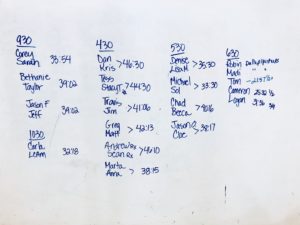 930
Corey
Sarah 33:54
Bethanie
Taylor 39:02
Jason F
Jeff 39:02
1030
Carla
Liam 32:18
430
Dan
Kris >46:30
Tess
>44:30
Travis
Jim >41:06
Greg
Matt >42:13
Andrew Rx
Sean Rx >46:10
Marta
Anna >38:15
530
Denise
Lisa M >35:30
Michael
Sol >33:30
Chad
Becca
Jason
Cloe >38:17
630
Robin
Madi
Tom
Cameron
Logan